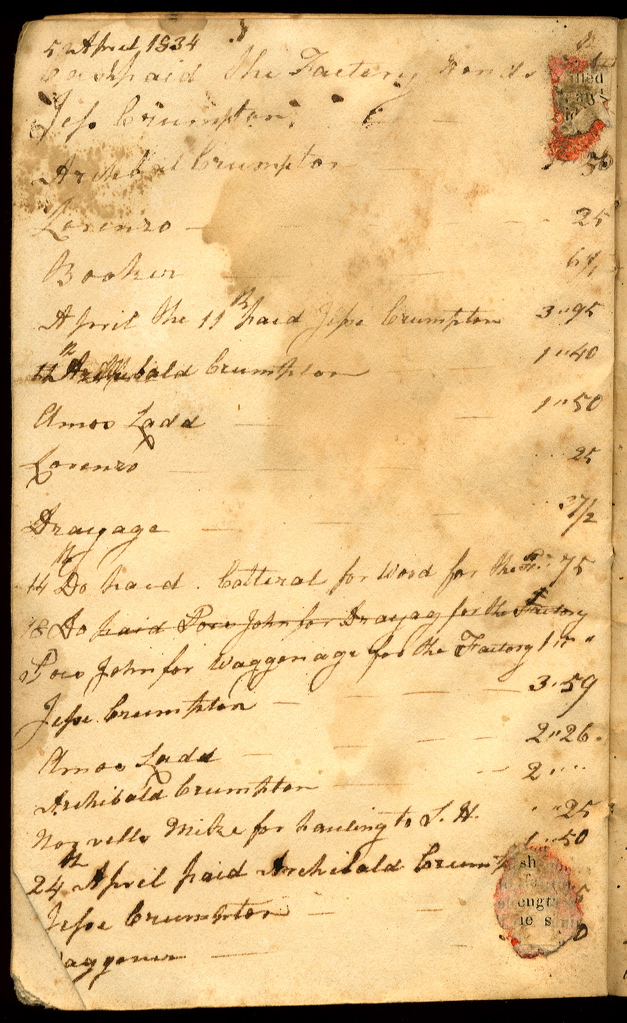 5 April 1834
Cash paid the Factory Hands
Jesse Crumpton,
Archibal Crumpton 50
Lorenzo 25
Booker
April the 11th paid Jesse Crumpton 3"95
Archibald Crumpton 1"40
Amos Ladd 1"50
Lorenzo 25
Drayage 37/2
14th Do paid. Cotteral for Wood for the F. 75
18 Do paid Poco John for Drayag for the Factory
Poco John for Waggonage for the Factory 1"
Jesse Crumpton 3"59
Amos Ladd 2"26
Archibald Crumpton 2"
Norvells Mike for hauling to L. H. 25
24th April paid Archibald Crump 50
Jesse Crumpton
aggoner
sh
engt
ie s